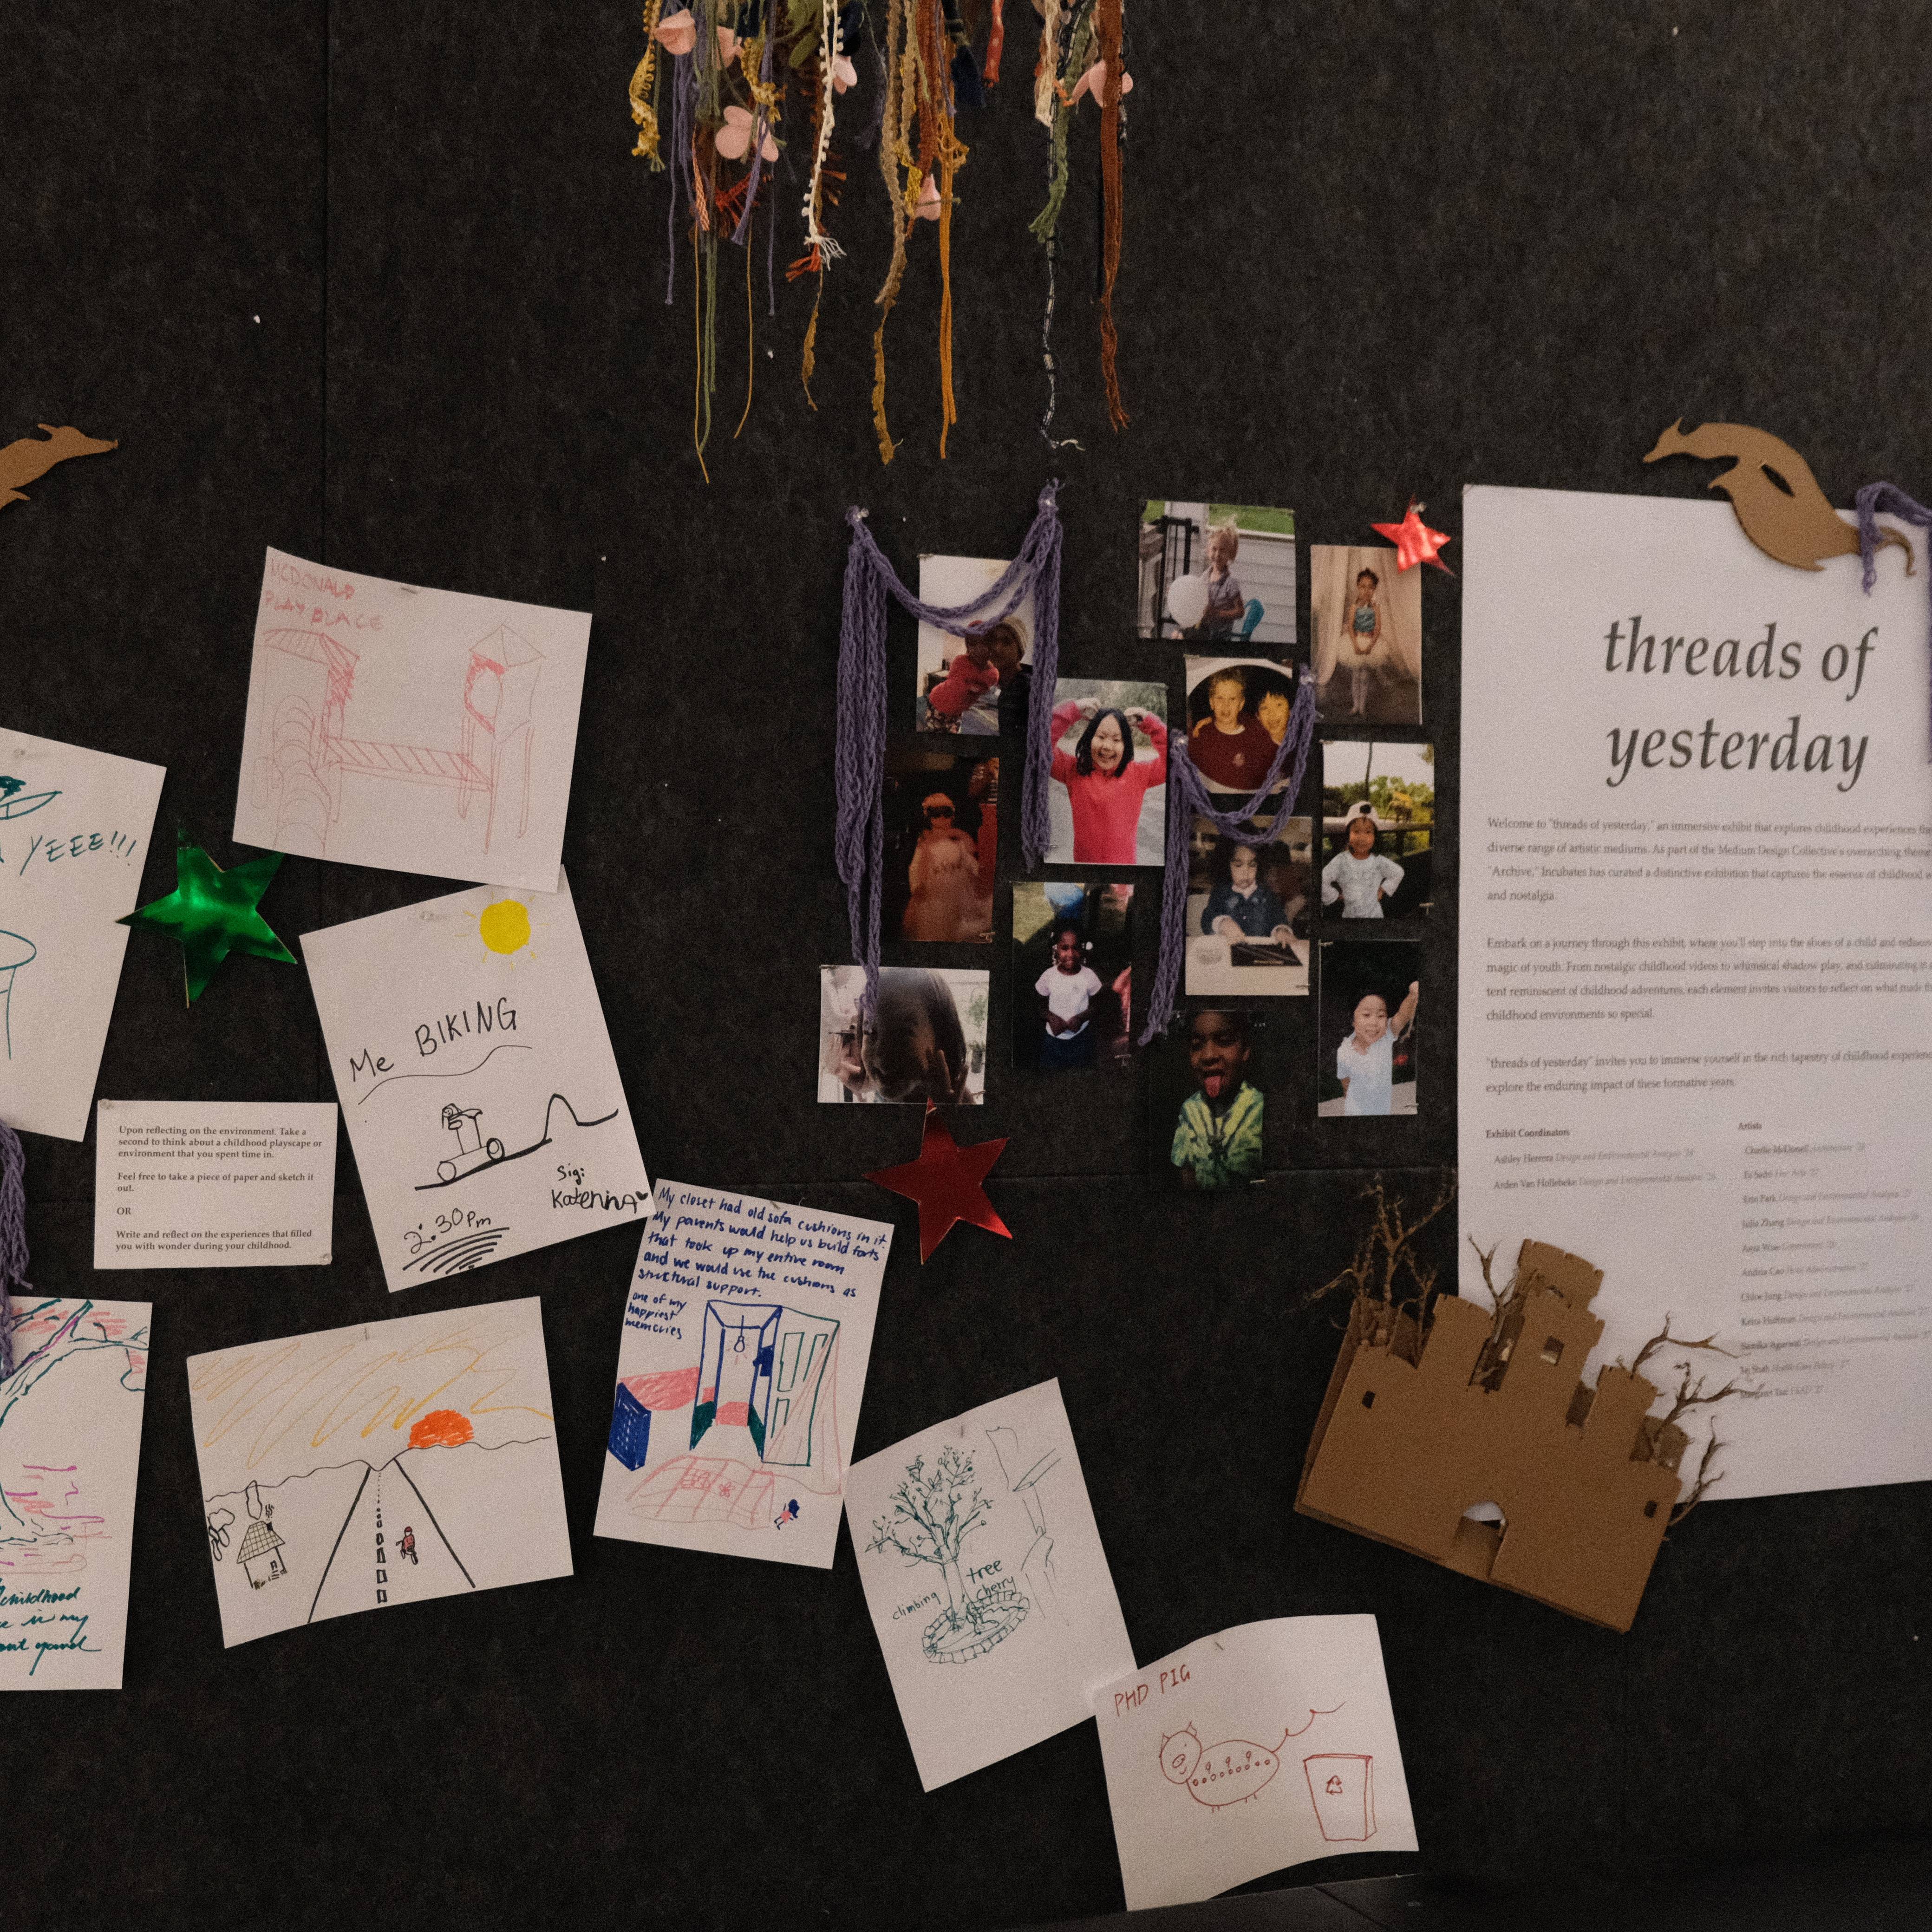 MCDONALD
PLAY PLACE
YEEE!!!
Me BIKING
Sig:
Katerina
2:30 Pm
Upon reflecting on the environment. Take a
second to think about a childhood playscape or
environment that you spent time in.
Feel free to take a piece of paper and sketch it
out.
OR
Write and reflect on the experiences that filled
you with wonder during your childhood.
My closet had old sofa cushions in it.
My parents would help us build forts
that took up my entire room
and we would use the cushions as
structural support.
one of my
happiest
memories
childhood
is my
yard
climbing tree
cherry
PHD PIG
threads of
yesterday
Welcome to "threads of yesterday," an immersive exhibit that explores childhood experiences
diverse range of artistic mediums. As part of the Medium Design Collective's overarching theme
"Archive," Incubates has curated a distinctive exhibition that captures the essence of childhood
and nostalgia.
Embark on a journey through this exhibit, where you'll step into the shoes of a child and
magic of youth. From nostalgic childhood videos to whimsical shadow play, and culminating in
tent reminiscent of childhood adventures, each element invites visitors to reflect on what made
childhood environments so special.
"threads of yesterday" invites you to immerse yourself in the rich tapestry of childhood
explore the enduring impact of these formative years.
Exhibit Coordinators
Ashley Herrera Design and Environmental Analysis
Arden Van Hollebeke Design and Environmental Analysis
Artists
Charlie McDonell Architecture
Ez Sadri Fine Arts
Park Design and Environmental Analysis
Julia Zhang Design and Environmental Analysis
Andria Cao Hotel Administration
Chloe Jung Design and Environmental Analysis
Keira Huffman Design and Environmental Analysis
Agarwal Design and Environmental Analysis
Shah Health Care Policy